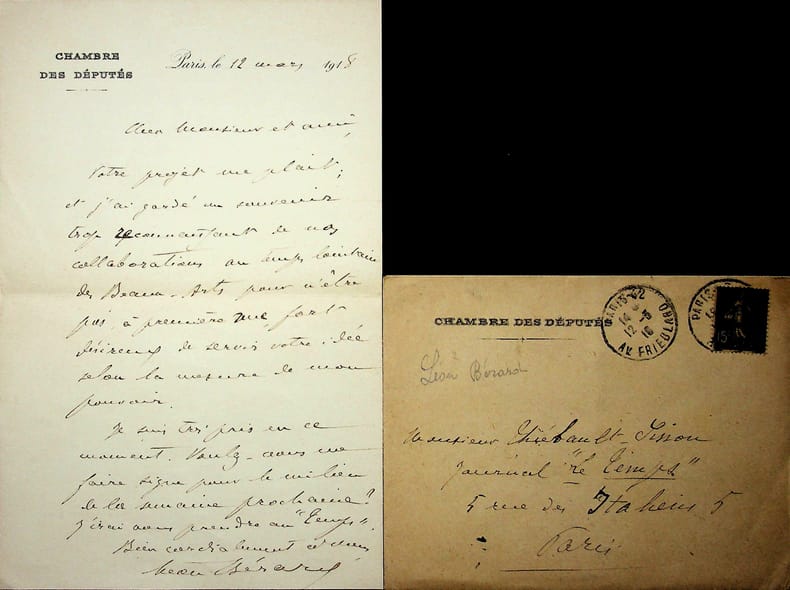 CHAMBRE
DES DÉPUTÉS
Paris, le 12 mars 1918
Cher Monsieur et ami,
Votre projet me plait ;
et j'ai gardé un souvenir
trop reconnaissant de nos
collaborations au temps lointain
des Beaux-Arts pour n'être
pas, à première vue, fort
désireux de servir votre idée
selon la mesure de mon
pouvoir.
Je suis très pris en ce
moment. Voulez-vous me
faire signe pour le milieu
de la semaine prochaine ?
J'irai vous prendre au "Temps".
Bien cordialement à vous
Léon Bérard
CHAMBRE DES DÉPUTÉS
PARIS 42
12 - 3
AV FRIEDLAND
PARIS
Léon Bérard
Monsieur Thiébault-Sisson
Journal "Le Temps"
5 rue des Italiens 5
Paris